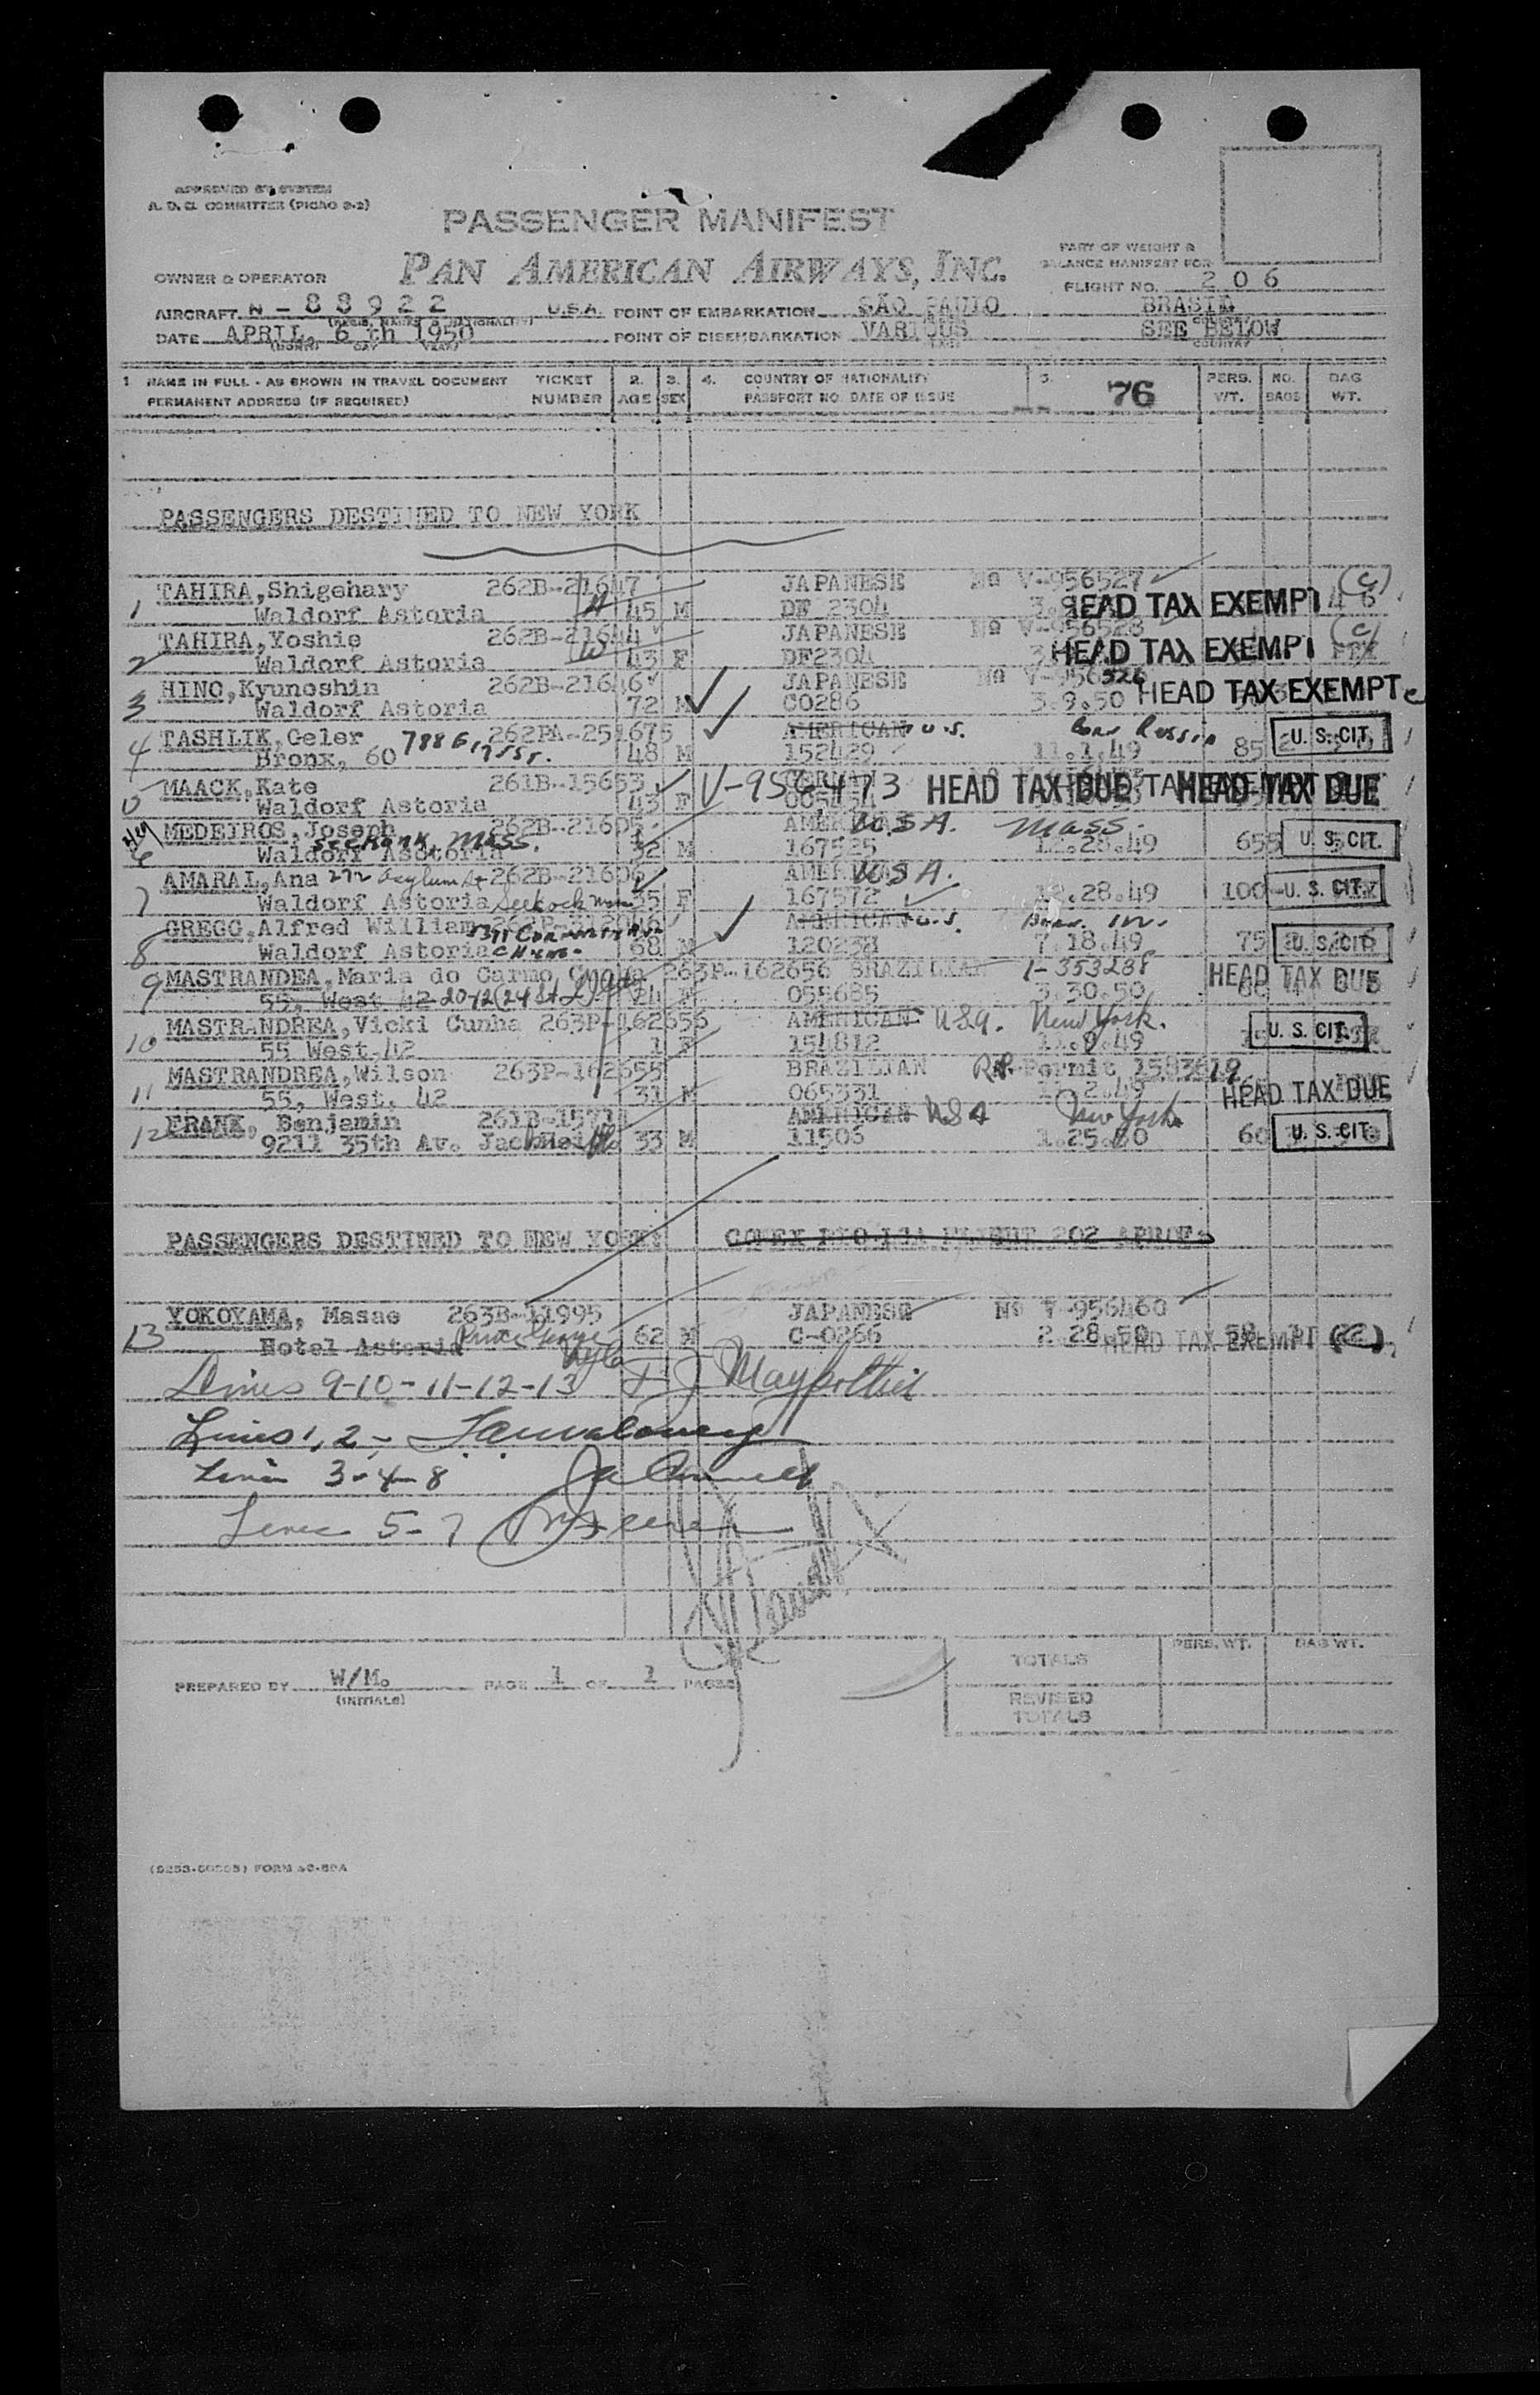 APPROVED BY SYSTEM
A. D. Q. COMMITTEE (PICAO 2-2)
PASSENGER MANIFEST
PART OF WEIGHT &
BALANCE MANIFEST FOR
OWNER & OPERATOR PAN AMERICAN AIRWAYS, INC.
FLIGHT NO. 206
AIRCRAFT N - 88922 U.S.A. POINT OF EMBARKATION SÃO PAULO BRASIL
DATE APRIL, 6 th 1950 POINT OF DISEMBARKATION VARIOUS SEE BELOW
1 NAME IN FULL - AS SHOWN IN TRAVEL DOCUMENT TICKET 2. 3. 4. COUNTRY OF NATIONALITY 5. 76 PERS. NO. BAG
PERMANENT ADDRESS (IF REQUIRED) NUMBER AGE SEX PASSPORT NO. DATE OF ISSUE WT. BAGS WT.
PASSENGERS DESTINED TO NEW YORK
TAHIRA, Shigehary 262B-21647 JAPANESE No V-956527 (C)
1 Waldorf Astoria 45 M DF 2304 HEAD TAX EXEMPT
TAHIRA, Yoshie 262B-21644 JAPANESE No V-956528 (C)
2 Waldorf Astoria 43 F DF2304 HEAD TAX EXEMPT
HINO, Kyunoshin 262B-21646 JAPANESE No V-956526
3 Waldorf Astoria 72 M C0286 3.9.50 HEAD TAX EXEMPT c
TASHLIK, Geler 262PA-251675 AMERICAN U.S. Born Russia
4 Bronx, 60 788 E. 175 St. 48 M 152429 11.1.49 85 U. S. CIT.
MAACK, Kate 261B-15653 V-956,473 HEAD TAX DUE HEAD TAX DUE
5 Waldorf Astoria 43 F
MEDEIROS, Joseph 262B-21605 U.S.A. Mass.
6 Waldorf Astoria Seekonk, Mass. 32 M 167525 12.28.49 U. S. CIT.
AMARAL, Ana 272 Asylum St 262B-21606 U.S.A.
7 Waldorf Astoria 35 F 167572 12.28.49 100 U. S. CIT.
GREGO, Alfred William AMERICAN U.S. Born
8 Waldorf Astoria 68 M 120238 7.18.49 75 U. S. CIT.
9 MASTRANDEA, Maria do Carmo Cunha 263P-162656 BRAZILIAN I-353288 HEAD TAX DUE
55, West 42 24 F 055685 3.30.50
MASTRANDREA, Vicki Cunha 263P-162656 AMERICAN U.S.A. New York.
10 55 West 42 1 F 154812 U. S. CIT.
MASTRANDREA, Wilson 263P-162655 BRAZILIAN Permit 1583619
11 55, West, 42 31 M 065331 HEAD TAX DUE
FRANK, Benjamin AMERICAN USA New York
12 9211 35th Av. 33 M 11506 1.25.50 60 U. S. CIT.
PASSENGERS DESTINED TO NEW YORK:
YOKOYAMA, Masae 263B-11995 JAPANESE No V-956460
13 Hotel Astoria Prince George 62 M C-0266 2 28.50 HEAD TAX EXEMPT
Lines 9-10-11-12-13
Lines 1, 2 -
Line 3-4-8
Lines 5-7
TOTALS PERS. WT. BAG WT.
PREPARED BY W/M. PAGE 1 OF 1 PAGES
(INITIALS)
REVISED
TOTALS